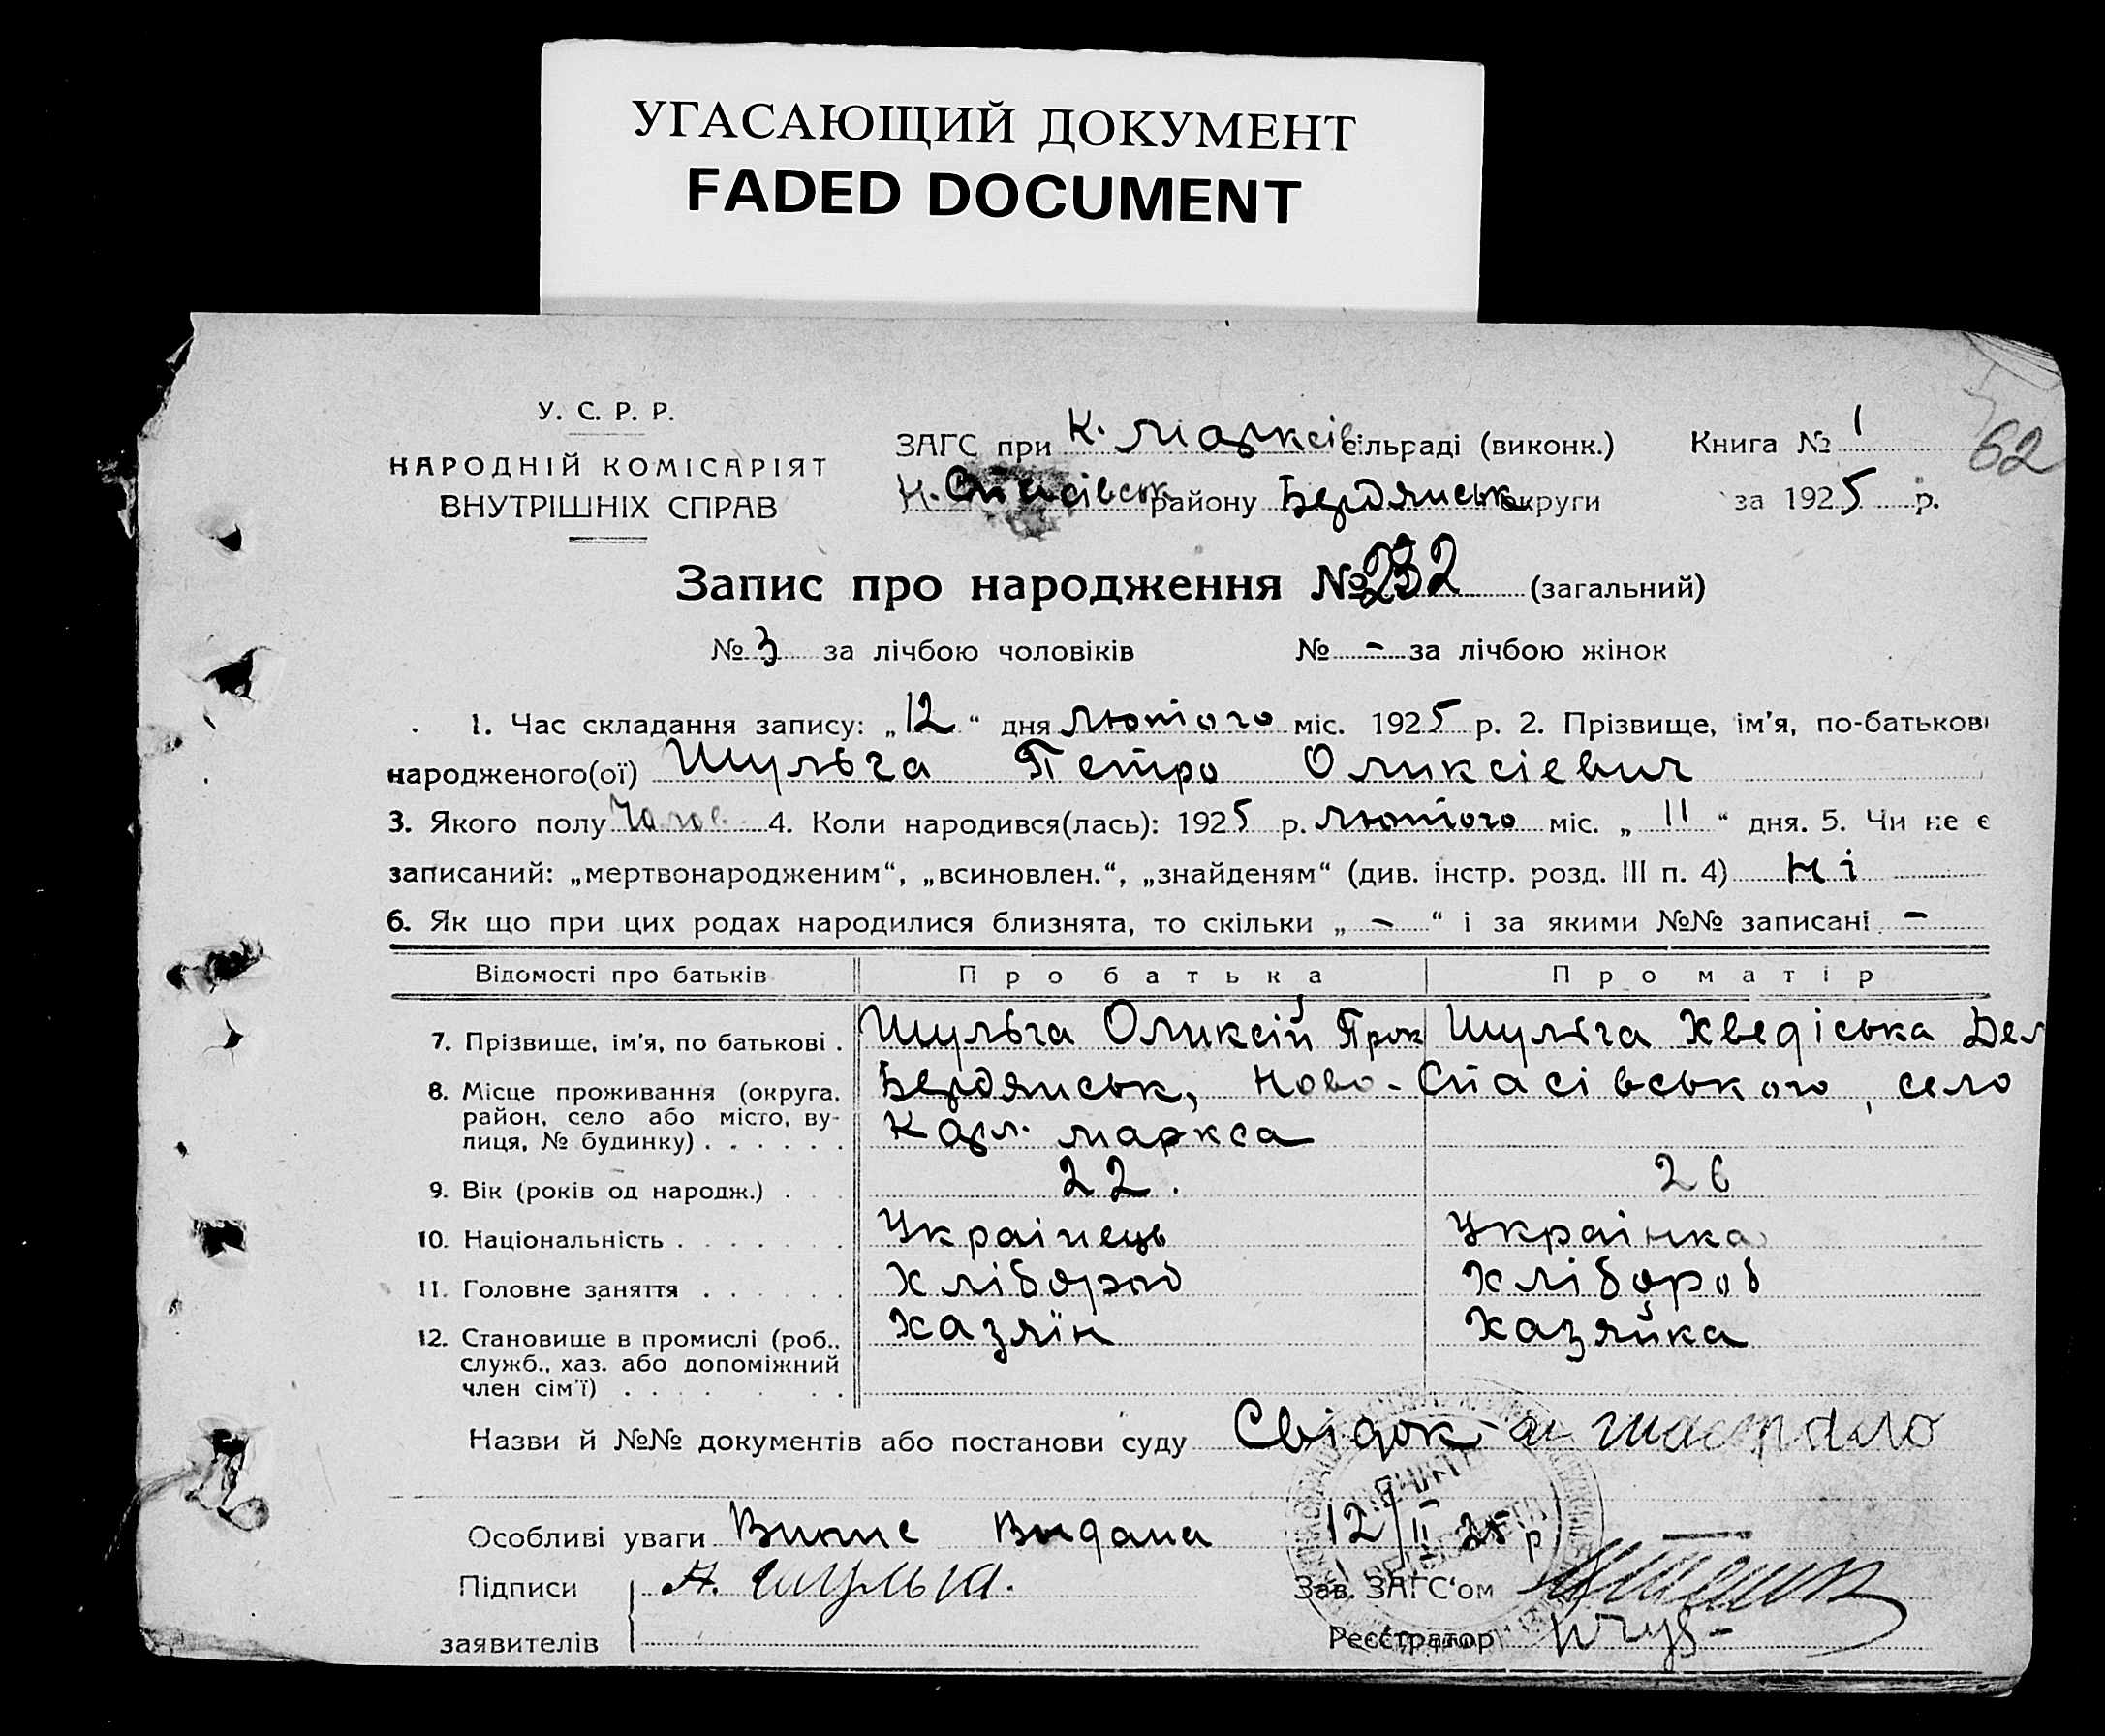 УГАСАЮЩИЙ ДОКУМЕНТ
FADED DOCUMENT
У. С. Р. Р.
НАРОДНІЙ КОМІСАРІЯТ
ВНУТРІШНІХ СПРАВ
ЗАГС при К. Марксів сільраді (виконк.) Книга № 1
62
Н. Спасівськ району Бердянськ округи за 1925 р.
Запис про народження № 232 (загальний)
№ 3 за лічбою чоловіків № - за лічбою жінок
1. Час складання запису: „12“ дня Лютого міс. 1925 р. 2. Прізвище, ім'я, по-батькові
народженого(ої) Шульга Петро Оликсіевич
3. Якого полу Чолов. 4. Коли народився(лась): 1925 р. Лютого міс. „11“ дня. 5. Чи не є
записаний: „мертвонародженим“, „всиновлен.“, „знайденям“ (див. інстр. розд. III п. 4) Ні
6. Як що при цих родах народилися близнята, то скільки „-“ і за якими №№ записані -
Відомості про батьків Про батька Про матір
7. Прізвище, ім'я, по батькові . Шульга Оликсій Прок Шульга Хведіська Дем
8. Місце проживання (округа, Бердянськ, Ново-Спасівського, село
район, село або місто, ву-
лиця, № будинку) . . . . . . Карл. маркса
9. Вік (років од народж.) . . . 22. 26
10. Національність . . . . . . . Украінець Украінка
11. Головне заняття . . . . . . Хлібороб Хлібороб
12. Становище в промислі (роб., Хазяїн Хазяйка
служб., хаз. або допоміжний
член сім'ї) . . . . . . .
Назви й №№ документів або постанови суду Свідок
Особливі уваги Випис Видана 12/II 25 р
Підписи А. Шульга. Зав. ЗАГС'ом
заявителів Реєстратор